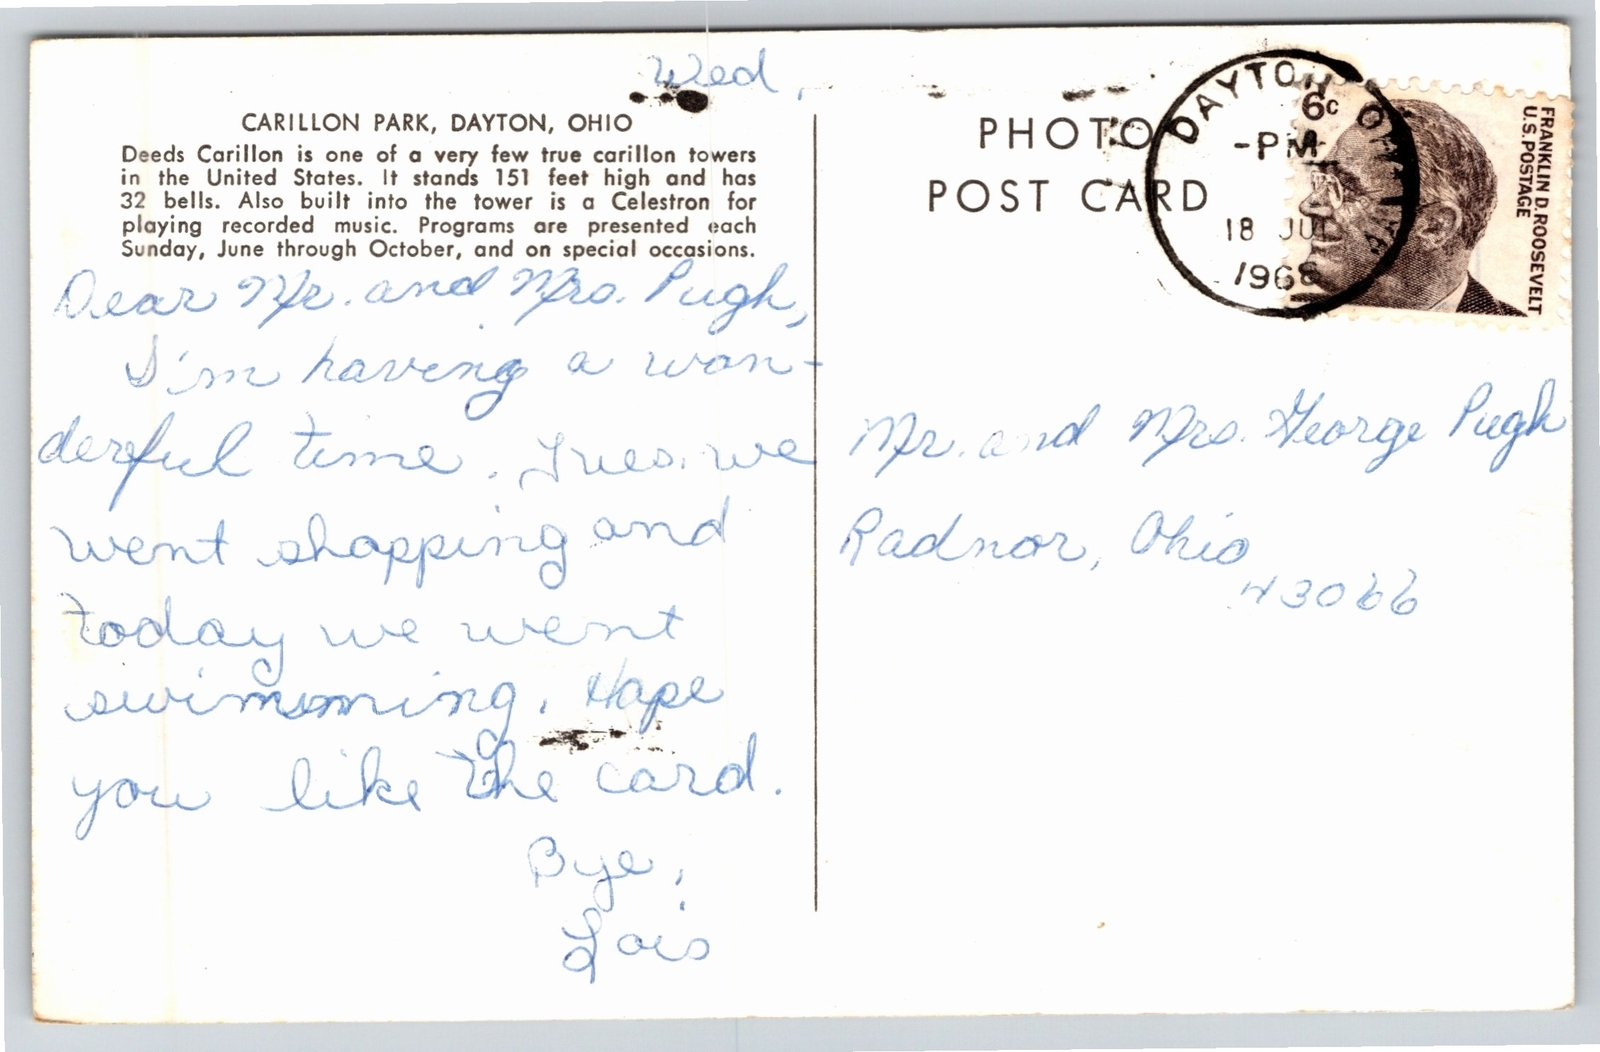 Wed,
CARILLON PARK, DAYTON, OHIO
Deeds Carillon is one of a very few true carillon towers
in the United States. It stands 151 feet high and has
32 bells. Also built into the tower is a Celestron for
playing recorded music. Programs are presented each
Sunday, June through October, and on special occasions.
Dear Mr. and Mrs. Pugh,
I'm having a won-
derful time. Tues. we
went shopping and
today we went
swimming. Hope
you like the card.
Bye,
Lois
PHOTO
POST CARD
DAYTON OHIO
-PM
18 JUL
1968
6c
FRANKLIN D. ROOSEVELT
U.S. POSTAGE
Mr. and Mrs. George Pugh
Radnor, Ohio
43066